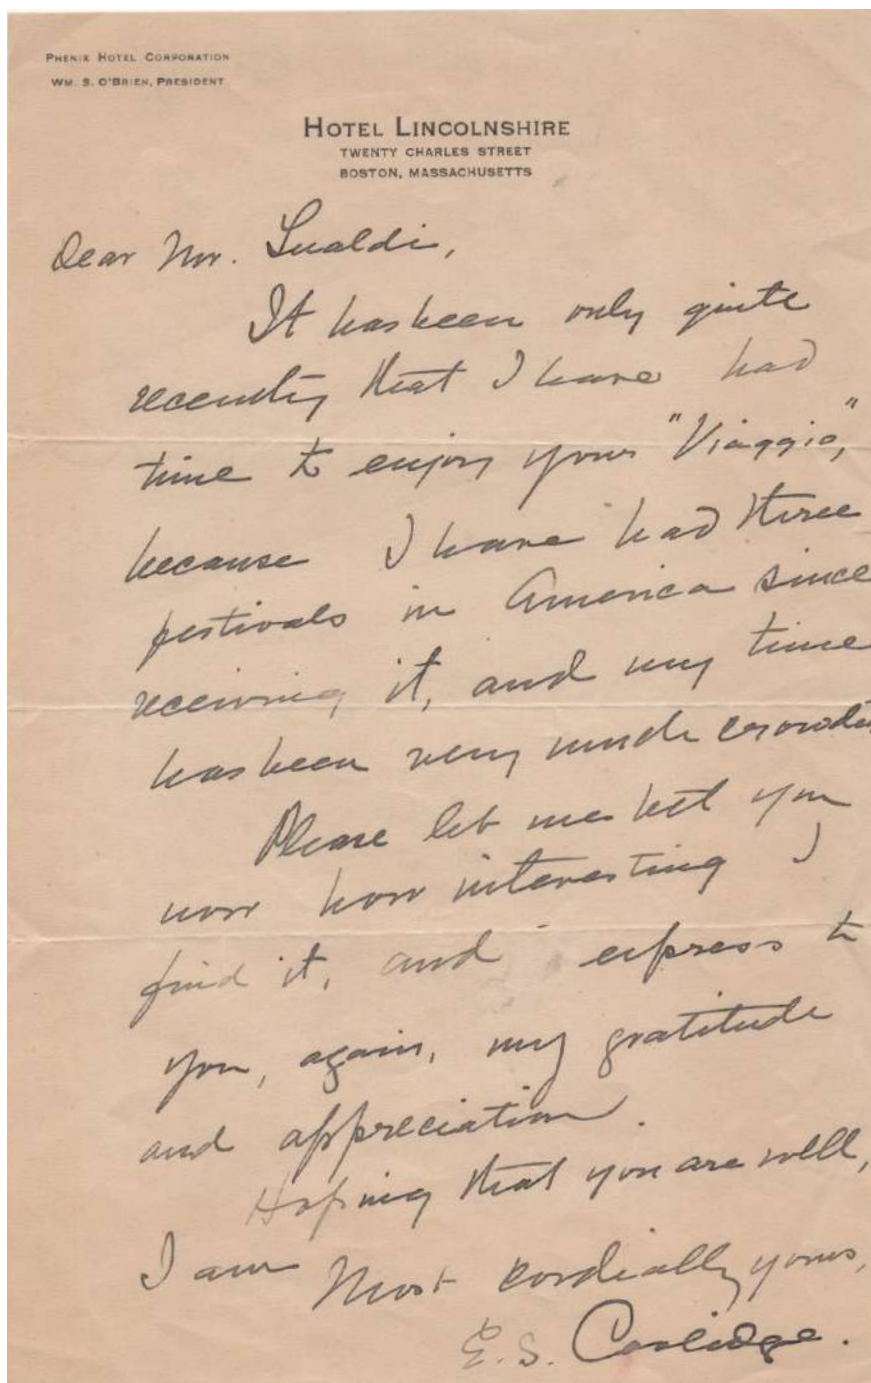 PHENIX HOTEL CORPORATION
WM. S. O'BRIEN, PRESIDENT
HOTEL LINCOLNSHIRE
TWENTY CHARLES STREET
BOSTON, MASSACHUSETTS
Dear Mr. Lualdi,
It has been only quite
recently that I have had
time to enjoy your "Viaggio,"
because I have had three
festivals in America since
receiving it, and my time
has been very much crowded
Please let me tell you
now how interesting I
find it, and express to
you, again, my gratitude
and appreciation.
Hoping that you are well,
I am Most cordially yours,
E. S. Coolidge.